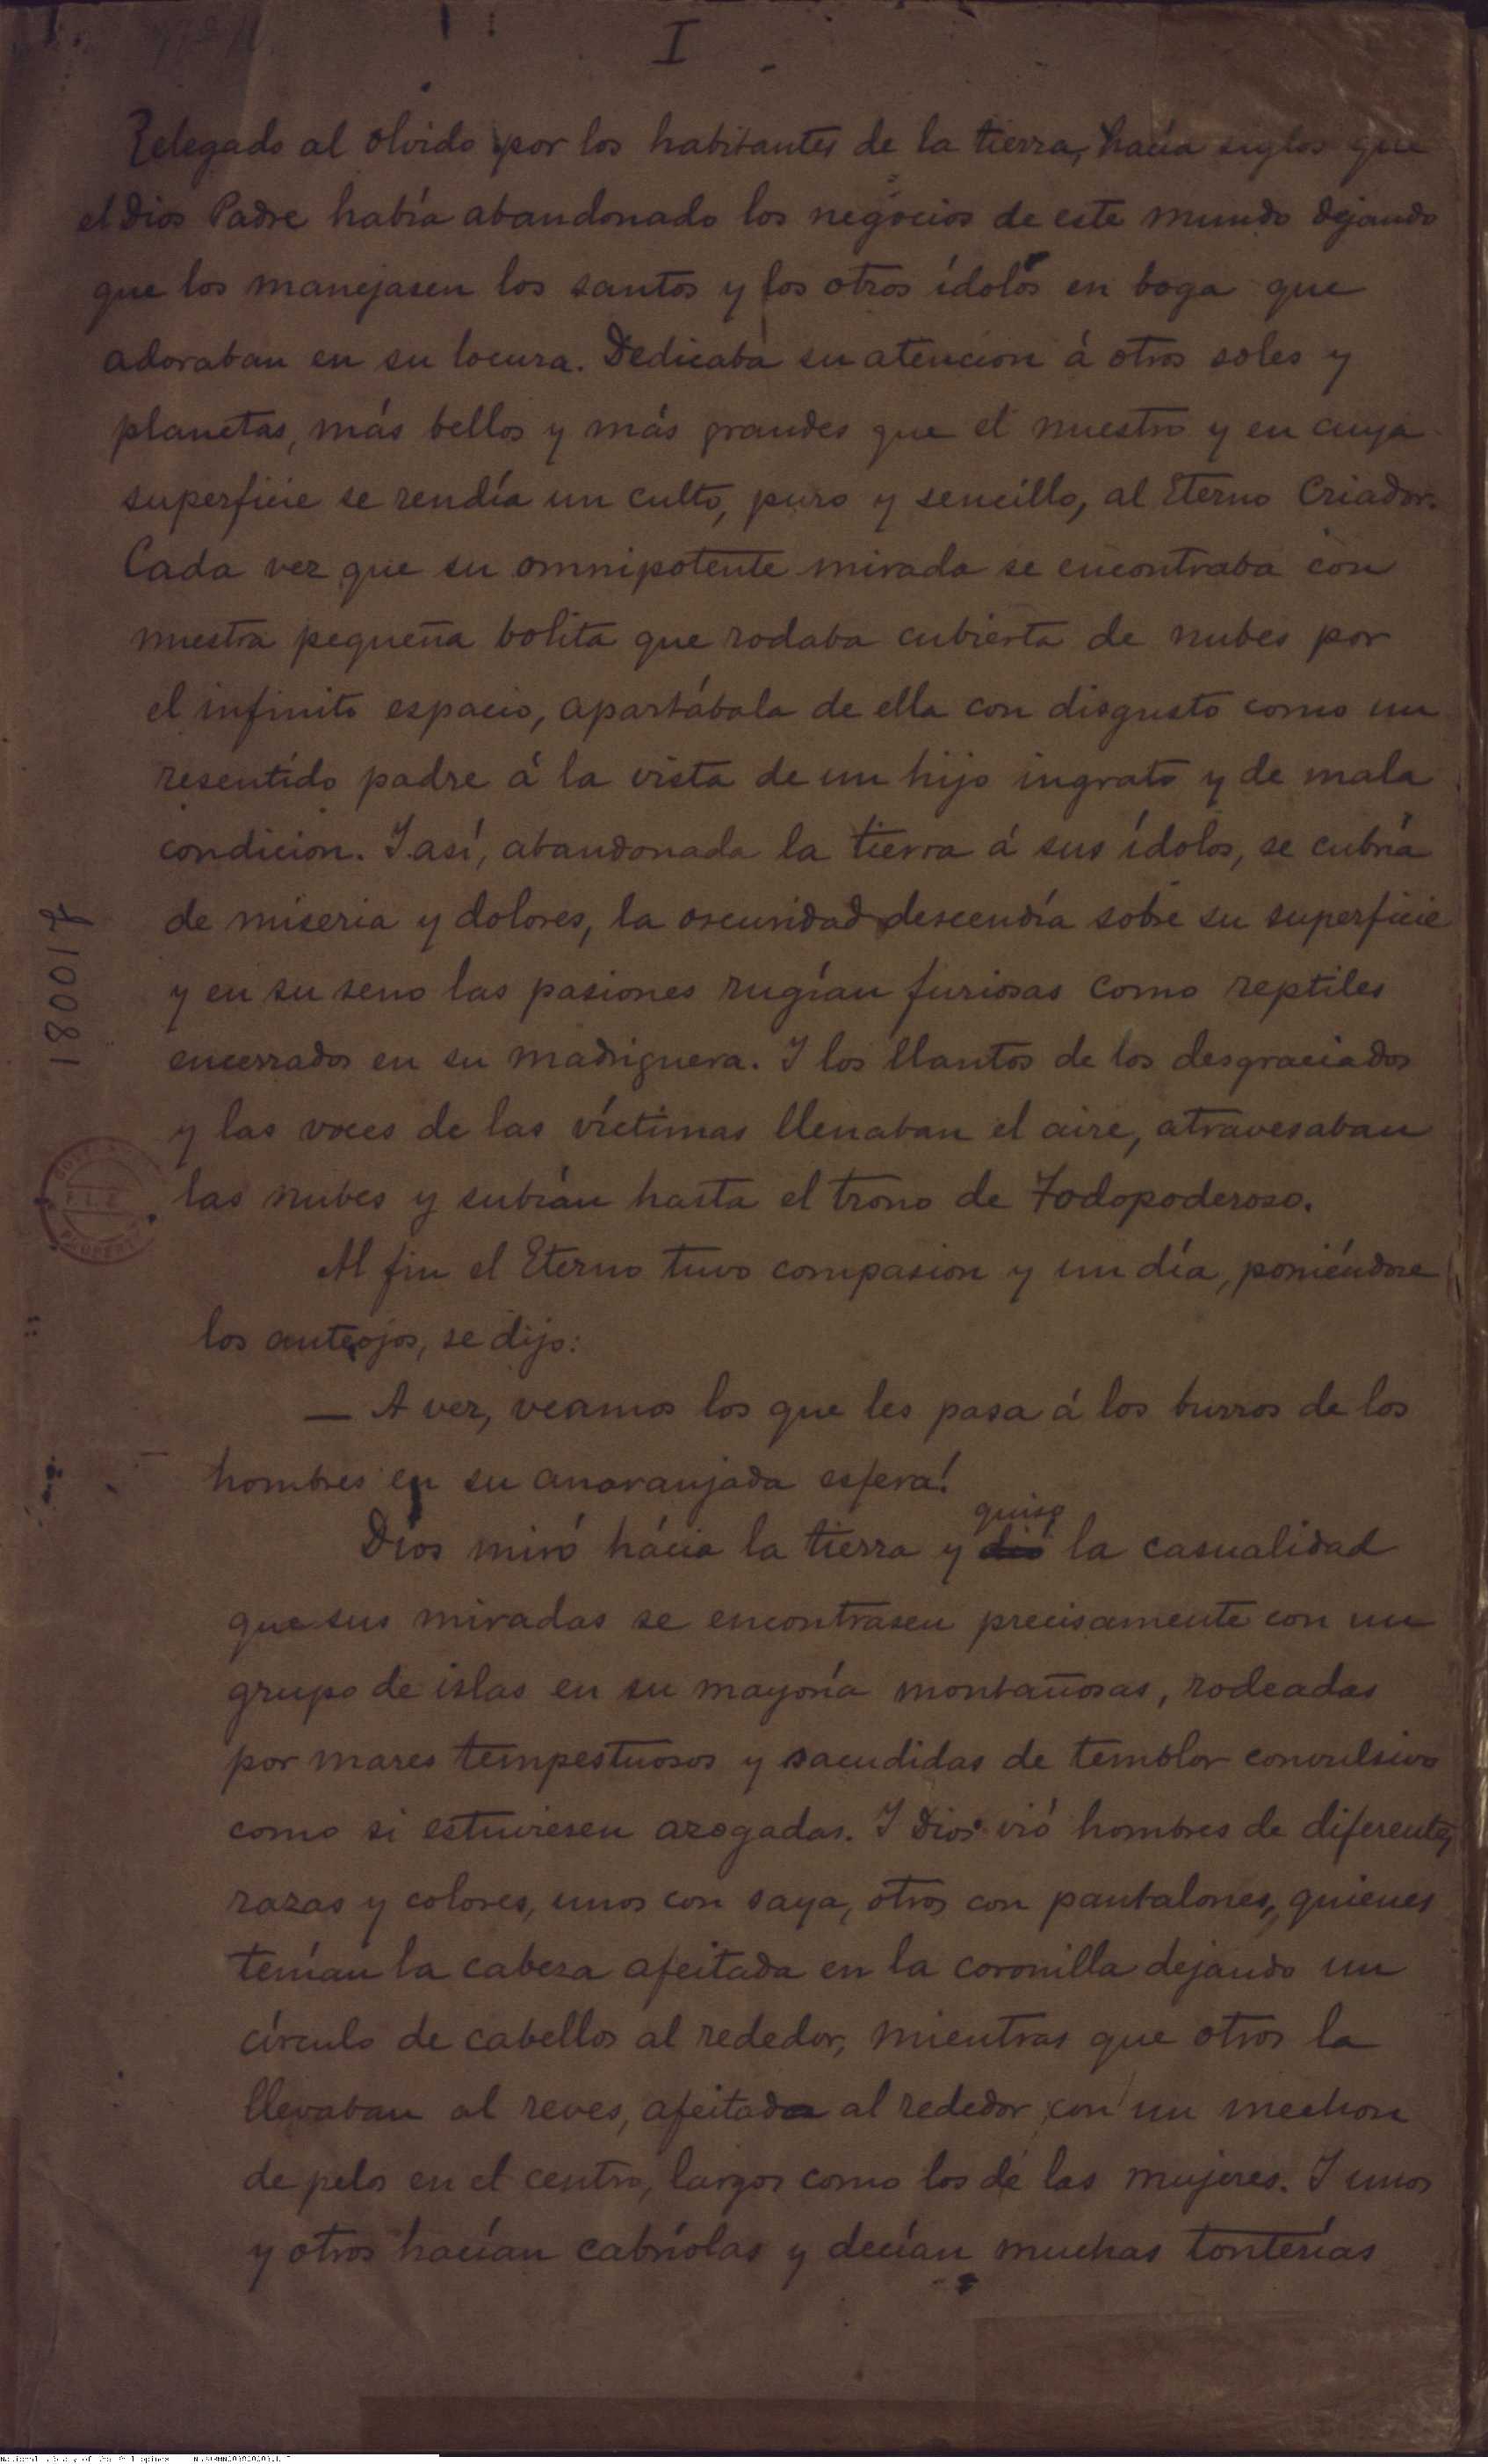 I
Relegado al olvido por los habitantes de la tierra, hacía siglos que
el Dios Padre había abandonado los negocios de este mundo dejando
que los manejasen los santos y los otros ídolos en boga que
adoraban en su locura. Dedicaba su atencion á otros soles y
planetas, más bellos y más grandes que el nuestro y en cuya
superficie se rendía un culto, puro y sencillo, al Eterno Criador.
Cada vez que su omnipotente mirada se encontraba con
nuestra pequeña bolita que rodaba cubierta de nubes por
el infinito espacio, apartábala de ella con disgusto como un
resentido padre á la vista de un hijo ingrato y de mala
condicion. I así, abandonada la tierra á sus ídolos, se cubría
de miseria y dolores, la oscuridad descendía sobre su superficie
y en su seno las pasiones rugían furiosas como reptiles
encerrados en su madriguera. I los llantos de los desgraciados
y las voces de las víctimas llenaban el aire, atravesaban
las nubes y subían hasta el trono de Todopoderoso.
Al fin el Eterno tuvo compasion y un día, poniéndose
los anteojos, se dijo:
— A ver, veamos los que les pasa á los burros de los
hombres en su anaranjada esfera!
quiso
Dios miró hácia la tierra y dió la casualidad
que sus miradas se encontrasen precisamente con un
grupo de islas en su mayoría montañosas, rodeadas
por mares tempestuosos y sacudidas de temblor convulsivo
como si estuviesen azogadas. I Dios vió hombres de diferentes
razas y colores, unos con saya, otros con pantalones, quienes
tenían la cabeza afeitada en la coronilla dejando un
círculo de cabellos al rededor, mientras que otros la
llevaban al reves, afeitada al rededor con un mechon
de pelos en el centro, largos como los de las mujeres. I unos
y otros hacían cabríolas y decían muchas tonterías
180017